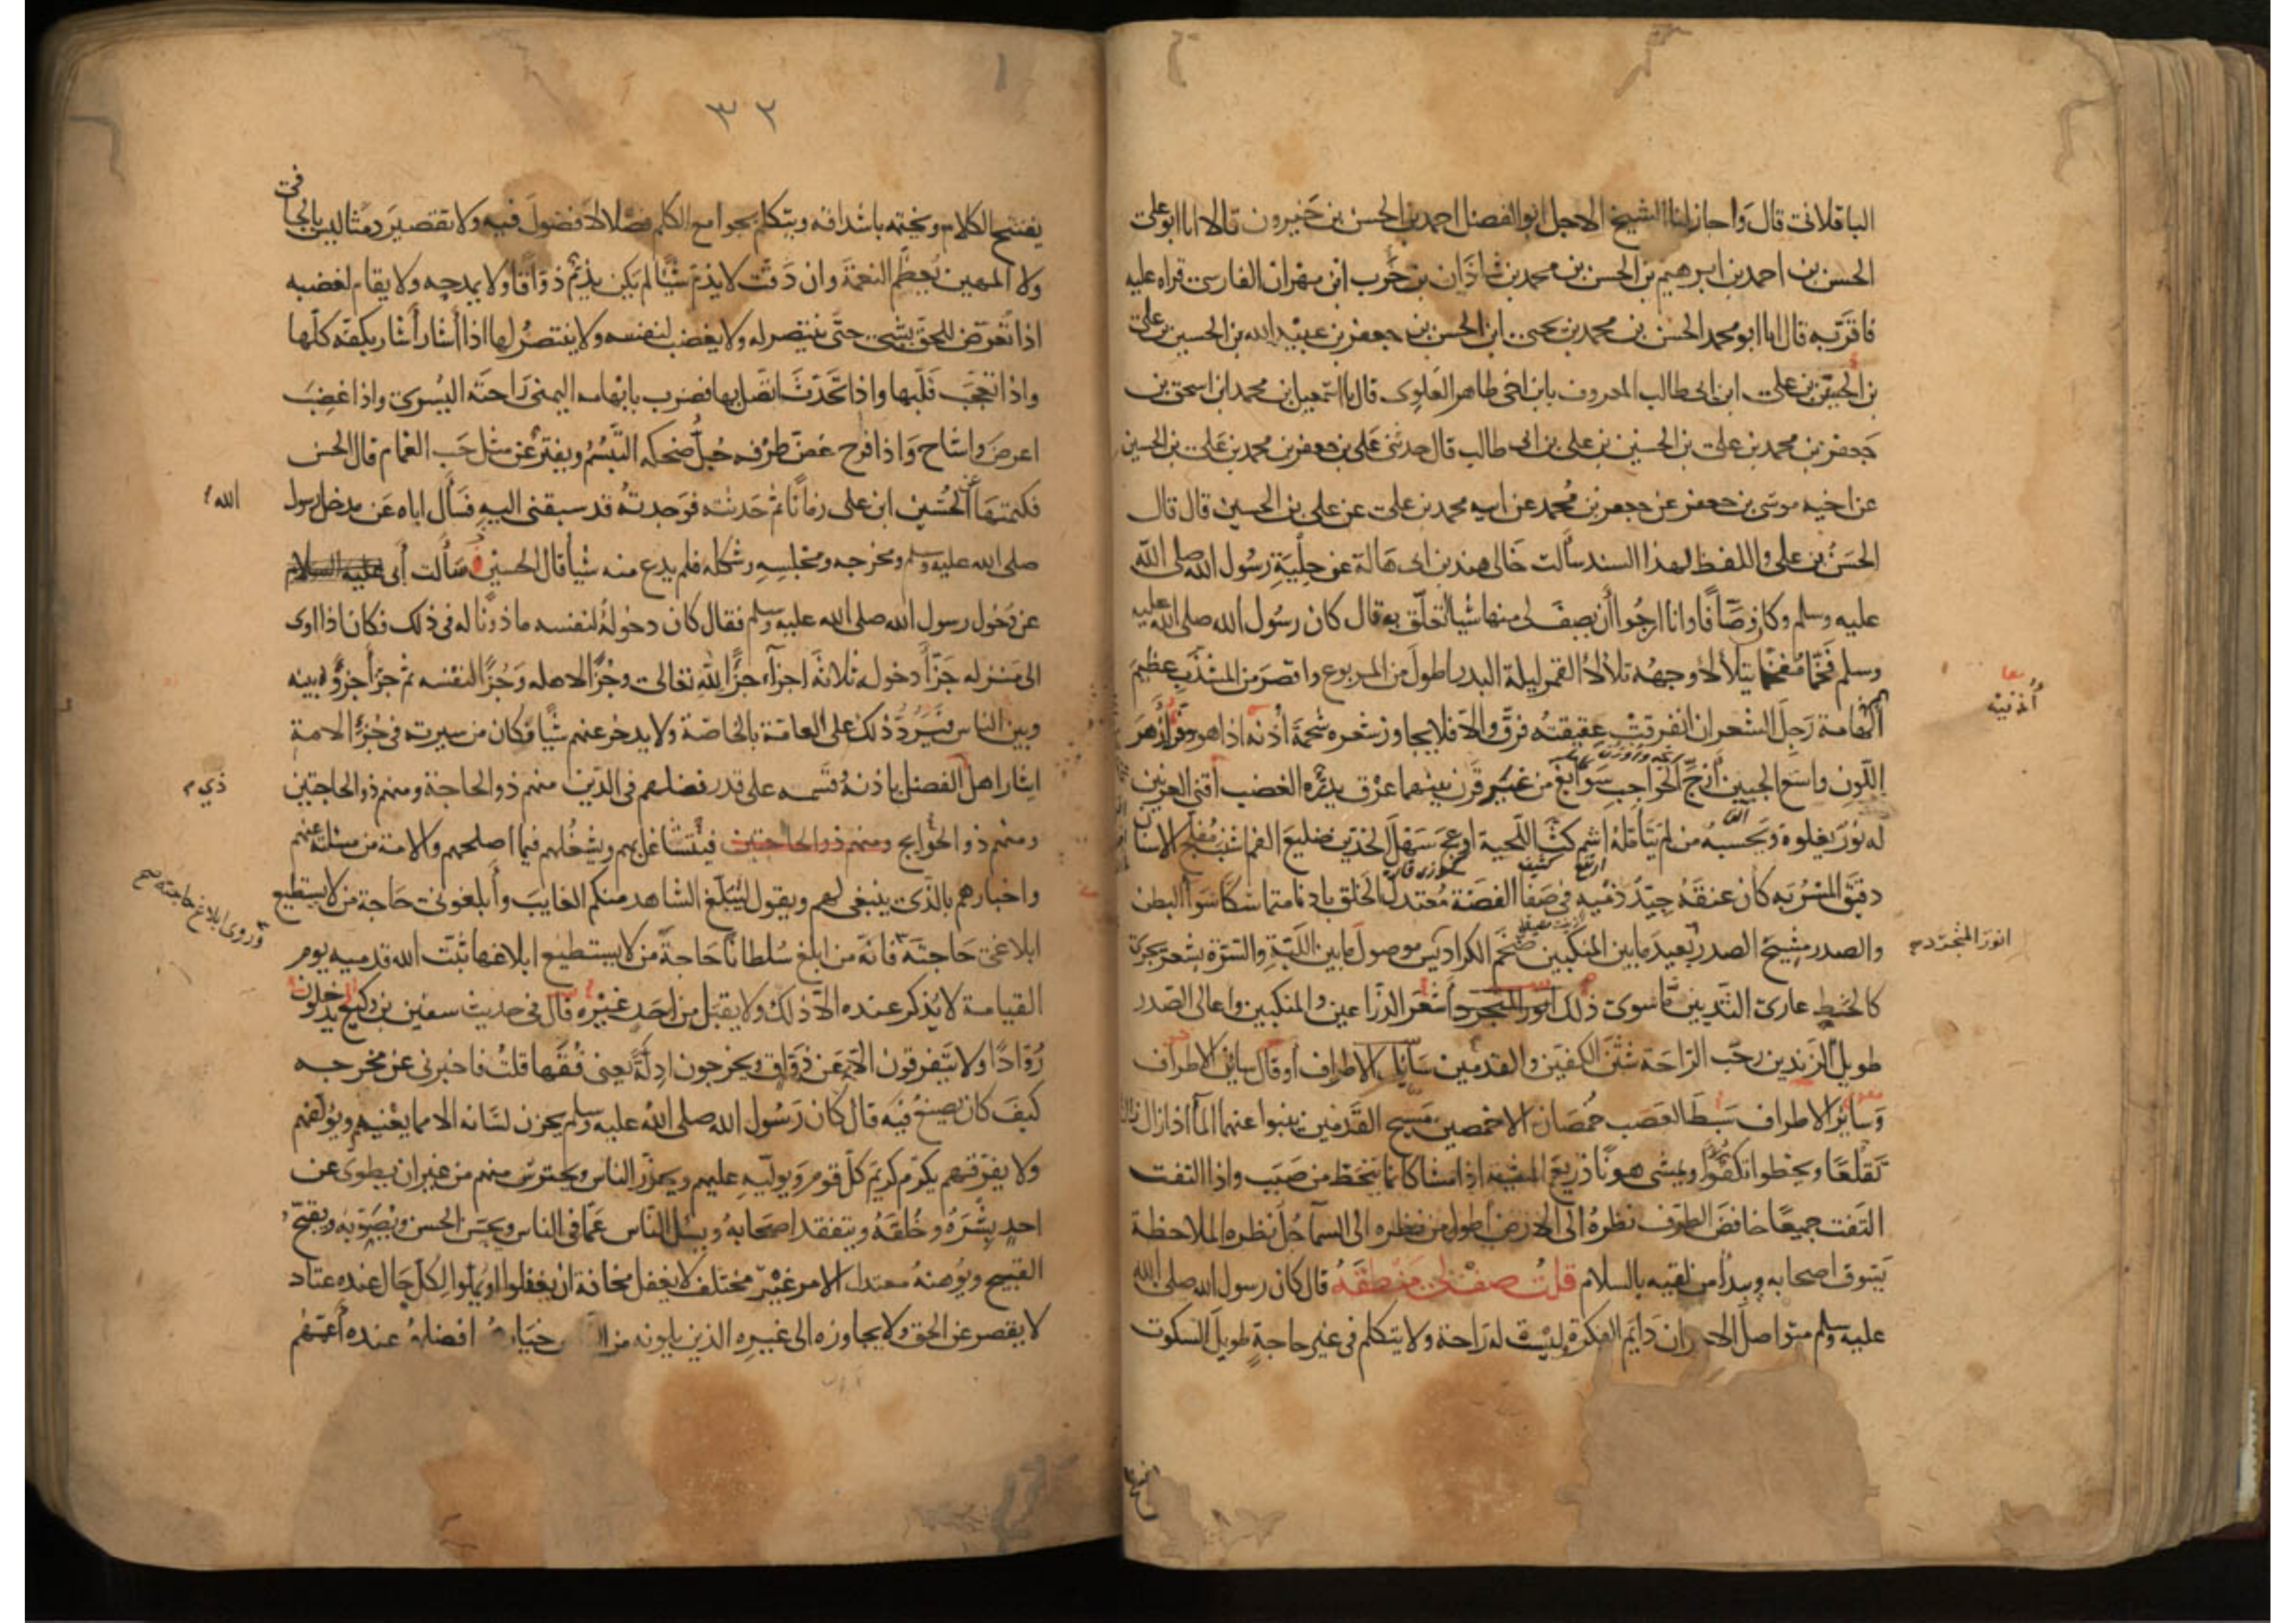 الباقلانى قال واجاز لنا الشيخ الاجل ابو الفضل احمد بن الحسن بن خيرون قالا انا ابو على
الحسن بن احمد بن ابرهيم بن الحسن بن محمد بن شاذان بن حرب ابن مهران الفارسى قراه عليه
فاقر به قال انا ابو محمد الحسن بن محمد بن يحيى ابن الحسن بن جعفر بن عبيد الله بن الحسين بن على
بن الحسين بن على ابن ابى طالب المعروف بابن اخى طاهر العلوى قال نا اسمعيل بن محمد ابن اسحق بن
جعفر بن محمد بن على بن الحسين بن على بن ابى طالب قال حدثنى على بن جعفر بن محمد بن على بن الحسين
عن اخيه موسى بن جعفر عن جعفر بن محمد عن ابيه محمد بن على عن على بن الحسين قال قال
الحسن بن على واللفظ لهذا السند سألت خالى هند بن ابى هالة عن حلية رسول الله صلى الله
عليه وسلم وكان وصافا وانا ارجوا أن يصف لى منها شيا اتعلق به قال كان رسول الله صلى الله عليه
وسلم فخما مفخما يتلألأ وجهه تلألأ القمر ليلة البدر اطول من المربوع واقصر من المشذب عظيم
الهامة رجل الشعر ان انفرقت عقيقته فرق والا فلا يجاوز شعره شحمة أذنه اذا هو وفره أزهر
أذنيه
اللون واسع الجبين أزج الحواجب سوابغ من غير قرن بينهما عرق يدره الغضب أقنى العرنين
له نور يعلوه ويحسبه من لم يتأمله اشم كث اللحية ادعج سهل الخدين ضليع الفم اشنب مفلج الاسنان
دقيق المسربه كان عنقه جيد دميه فى صفا الفضة معتدل الخلق بادنا متماسكا سوأ البطن
والصدر مشيح الصدر بعيد ما بين المنكبين ضخم الكراديس موصول ما بين اللبة والسرة بشعر يجرى
انور المتجرد
كالخط عارى الثديين ما سوى ذلك انور المتجرد أشعر الذراعين والمنكبين واعالى الصدر
طويل الزندين رحب الراحة شثن الكفين والقدمين سائل الاطراف أو قال سائن الاطراف
وسائر الاطراف سبط العصب خمصان الاخمصين مسيح القدمين ينبوا عنهما المأ اذا زال زال
تقلعا ويخطوا تكفؤا ويمشى هونا ذريع المشية اذا مشا كانما ينحط من صبب واذا التفت
التفت جميعا خافض الطرف نظره الى الارض أطول من نظره الى السمآ جل نظره الملاحظة
يسوق اصحابه ويبدأ من لقيه بالسلام قلت صف لى منطقه قال كان رسول الله صلى الله
عليه وسلم متواصل الاحزان دايم الفكرة ليست له راحة ولا يتكلم فى غير حاجة طويل السكوت
٣٢
يفتتح الكلام ويختمه باشداقه ويتكلم بجوامع الكلم فصلا لا فضول فيه ولا تقصير دمثا ليس بالجافى
ولا المهين يعظم النعمة وان دقت لا يذم شيئا لم يكن يذم ذواقا ولا يمدحه ولا يقام لغضبه
اذا تعرض للحق بشى حتى ينتصر له ولا يغضب لنفسه ولا ينتصر لها اذا أشار أشار بكفه كلها
واذا تعجب قلبها واذا تحدث اتصل بها فضرب بابهامه اليمنى راحته اليسرى واذا غضب
اعرض واشاح واذا فرح غض طرفه جل ضحكه التبسم ويفتر عن مثل حب الغمام قال الحسن
فكتمتها الحسين ابن على زمانا ثم حدثته فوجدته قد سبقنى اليه فسأل اباه عن مدخل رسول
الله
صلى الله عليه وسلم ومخرجه ومجلسه وشكله فلم يدع منه شيأ قال الحسين سألت أبى عليه السلام
عن دخول رسول الله صلى الله عليه وسلم فقال كان دخوله لنفسه ماذونا له فى ذلك فكان اذا اوى
الى منزله جزأ دخوله ثلاثة اجزآء جزأ لله تعالى وجزأ لاهله وجزأ لنفسه ثم جزأ جزؤه بينه
وبين الناس فيرد ذلك على العامة بالخاصة ولا يدخر عنهم شيأ وكان من سيرته فى جزء الامة
ايثار اهل الفضل باذنه وقسمه على قدر فضلهم فى الدين منهم ذو الحاجة ومنهم ذو الحاجتين
ومنهم ذو الحوايج ومنهم ذو الحاجتين فيتشاغل بهم ويشغلهم فيما اصلحهم والامة من مسئلته عنهم
واخبارهم بالذى ينبغى لهم ويقول ليبلغ الشاهد منكم الغايب وأبلغونى حاجة من لا يستطيع
وروى ابلاغ حاجته صح
ابلاغى حاجته فانه من ابلغ سلطانا حاجة من لا يستطيع ابلاغها ثبت الله قدميه يوم
القيامة لا يذكر عنده الا ذلك ولا يقبل من احد غيره قال فى حديث سفين بن وكيع يدخلون
روادا ولا يتفرقون الا عن ذواق ويخرجون ادلة يعنى فقها قلت فاخبرنى عن مخرجه
كيف كان يصنع فيه قال كان رسول الله صلى الله عليه وسلم يخزن لسانه الا مما يعنيهم ويؤلفهم
ولا يفرقهم يكرم كريم كل قوم ويوليه عليهم ويحذر الناس ويحترس منهم من غير ان يطوى عن
احد بشره وخلقه ويتفقد اصحابه ويسل الناس عما فى الناس ويحسن الحسن ويصوبه ويقبح
القبيح ويوهنه معتدل الامر غير مختلف لا يغفل مخافة ان يغفلوا او يملوا لكل حال عنده عتاد
لا يقصر عن الحق ولا يجاوزه الى غيره الذين يلونه من خيار افضلهم عنده أعمهم